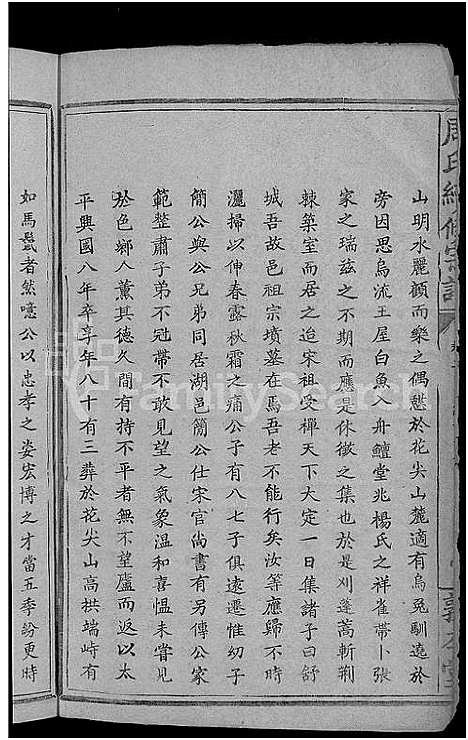 周氏續修宗譜
山明水麗顧而樂之偶憇於花尖山麓適有烏兎馴遶於
旁因思烏流王屋白魚入舟鱣堂兆楊氏之祥雀帶卜張
家之瑞茲之不期而應是休徵之集也於是刈蓬蒿斬荆
棘築室而居之迨宋祖受禪天下大定一日集諸子曰舒
城吾故邑祖宗墳墓在焉吾老不能行矣汝等應歸不時
灑掃以伸春露秋霜之痛公子有八七子俱遠遷惟幼子
簡公與公兄弟同居湖邑簡公仕宋官尚書有另傳公家
範整肅子弟不冠帶不敢見望之氣象温和喜愠未嘗見
於色鄉人薫其德久間有持不平者無不望廬而返以太
平興國八年卒享年八十有三葬於花尖山高拱端峙有
如馬鬛者然噫公以忠孝之姿宏博之才當五季紛更時
FamilySearch